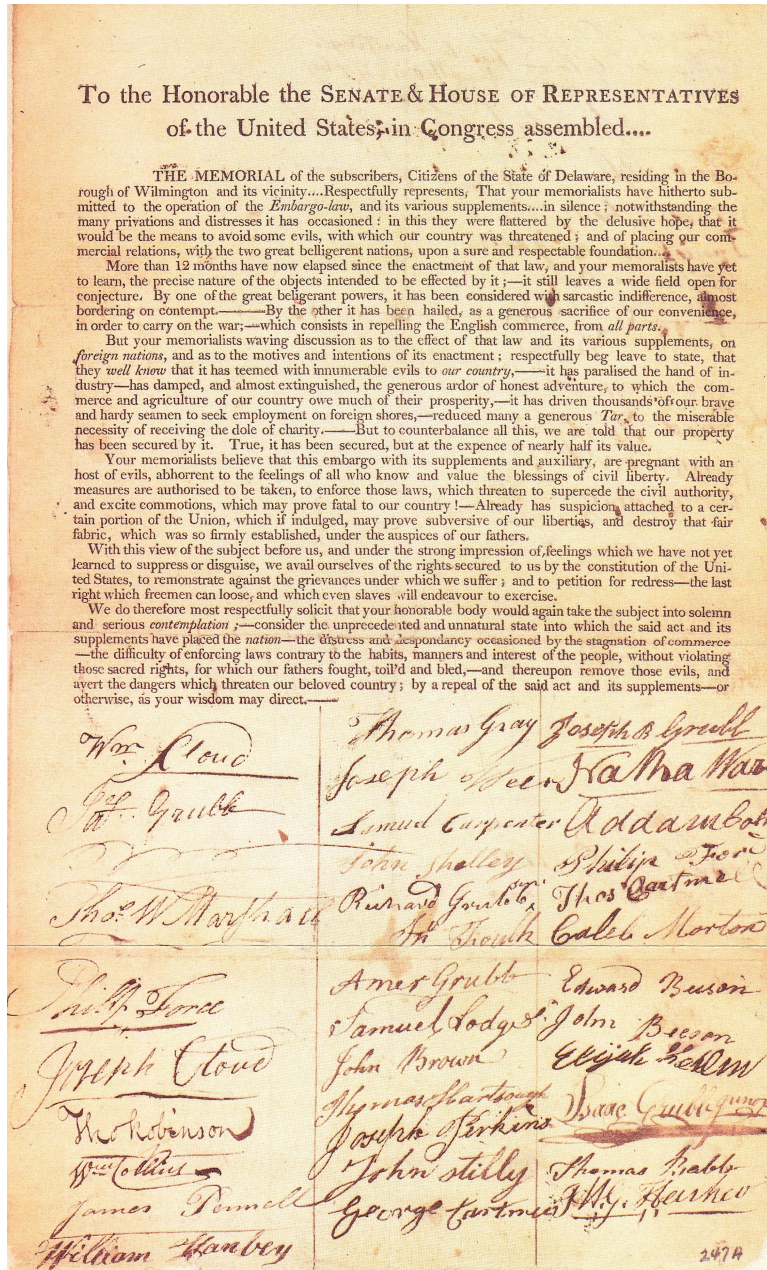 To the Honorable the SENATE & HOUSE OF REPRESENTATIVES
of the United States, in Congress assembled....
THE MEMORIAL of the subscribers, Citizens of the State of Delaware, residing in the Bo-
rough of Wilmington and its vicinity....Respectfully represents, That your memorialists have hitherto sub-
mitted to the operation of the Embargo-law, and its various supplements....in silence; notwithstanding the
many privations and distresses it has occasioned: in this they were flattered by the delusive hope, that it
would be the means to avoid some evils, with which our country was threatened; and of placing our com-
mercial relations, with the two great belligerent nations, upon a sure and respectable foundation....
More than 12 months have now elapsed since the enactment of that law, and your memorialists have yet
to learn, the precise nature of the objects intended to be effected by it;—it still leaves a wide field open for
conjecture. By one of the great beligerant powers, it has been considered with sarcastic indifference, almost
bordering on contempt.———By the other it has been hailed, as a generous sacrifice of our convenience,
in order to carry on the war;—which consists in repelling the English commerce, from all parts.
But your memorialists waving discussion as to the effect of that law and its various supplements, on
foreign nations, and as to the motives and intentions of its enactment; respectfully beg leave to state, that
they well know that it has teemed with innumerable evils to our country,——it has paralised the hand of in-
dustry—has damped, and almost extinguished, the generous ardor of honest adventure, to which the com-
merce and agriculture of our country owe much of their prosperity,—it has driven thousands of our brave
and hardy seamen to seek employment on foreign shores,—reduced many a generous Tar, to the miserable
necessity of receiving the dole of charity.——But to counterbalance all this, we are told that our property
has been secured by it. True, it has been secured, but at the expence of nearly half its value.
Your memorialists believe that this embargo with its supplements and auxiliary, are pregnant with an
host of evils, abhorrent to the feelings of all who know and value the blessings of civil liberty. Already
measures are authorised to be taken, to enforce those laws, which threaten to supercede the civil authority,
and excite commotions, which may prove fatal to our country!—Already has suspicion attached to a cer-
tain portion of the Union, which if indulged, may prove subversive of our liberties, and destroy that fair
fabric, which was so firmly established, under the auspices of our fathers.
With this view of the subject before us, and under the strong impression of feelings which we have not yet
learned to suppress or disguise, we avail ourselves of the rights secured to us by the constitution of the Uni-
ted States, to remonstrate against the grievances under which we suffer; and to petition for redress—the last
right which freemen can loose, and which even slaves will endeavour to exercise.
We do therefore most respectfully solicit that your honorable body would again take the subject into solemn
and serious contemplation;—consider the unprecedented and unnatural state into which the said act and its
supplements have placed the nation—the distress and despondancy occasioned by the stagnation of commerce
—the difficulty of enforcing laws contrary to the habits, manners and interest of the people, without violating
those sacred rights, for which our fathers fought, toil'd and bled,—and thereupon remove those evils, and
avert the dangers which threaten our beloved country; by a repeal of the said act and its supplements—or
otherwise, as your wisdom may direct.——
Wm Cloud
Grubb
Thos W Marshall
Philip Force
Joseph Cloud
Tho Robinson
Wm Collins
James Pennell
William Hanbey
Thomas Gray
Joseph
Samuel Carpenter
John Shelley
Richard Grubb
Jno Foulk
Amer Grubb
Samuel Lodge
John Brown
Thomas
Joseph Perkins
John Stilly
George Cartmell
Joseph B Grubb
Addam
Philip
Thos Cartmell
Caleb Morton
Edward Beeson
John Beeson
Elijah
Isaac Grubb
Thomas Babb
247A